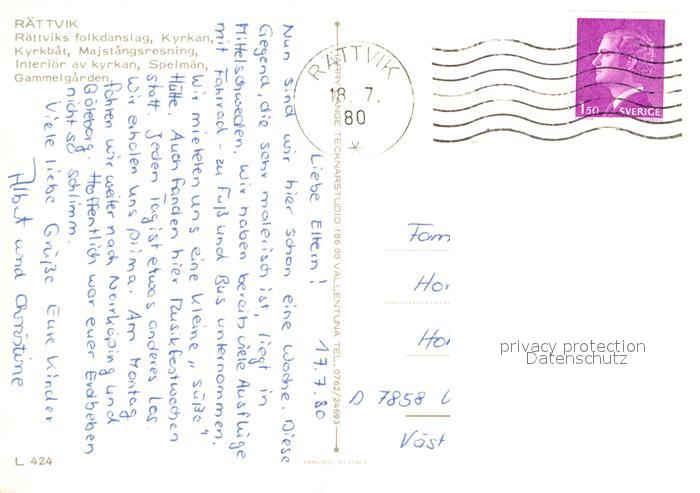 RÄTTVIK
Rättviks folkdanslag, Kyrkan,
Kyrkbåt, Majstångsresning,
Interiör av kyrkan, Spelmän,
Gammelgården.
17.7.80
Liebe Eltern!
Nun sind wir hier schon eine Woche. Diese
Gegend, die sehr malerisch ist, liegt in
Mittelschweden. Wir haben bereits viele Ausflüge
mit Fahrrad - zu Fuß und Bus unternommen.
Wir mieteten uns eine kleine „süße"
Hütte. Auch fanden hier Musikfestwochen
statt. Jeden Tag ist etwas anderes los.
Wir erholen uns prima. Am Montag
fahren wir weiter nach Norrköping und
Göteborg. Hoffentlich war euer Erdbeben
nicht so schlimm.
Viele liebe Grüße Eure Kinder
Albert und Christine
TECKNARSTUDIO 186 00 VALLENTUNA TEL. 0762/24693
PRINTED IN ITALY
RÄTTVIK
18.7.
80
1.50 SVERIGE
Fam
Hor
Ho
D 7858
Väst
privacy protection
Datenschutz
L 424